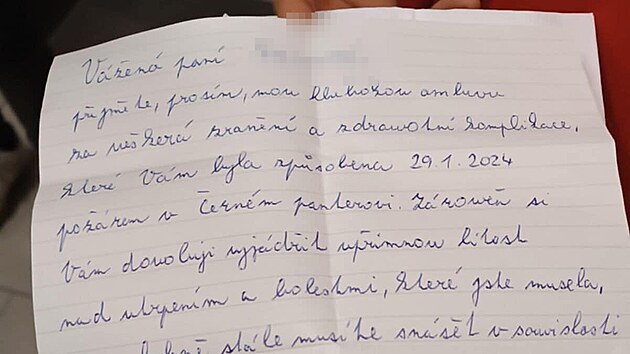 Vážená paní
přijměte, prosím, mou hlubokou omluvu
za veškerá zranění a zdravotní komplikace,
které Vám byla způsobena 29.1.2024
požárem v Černém panterovi. Zároveň si
Vám dovoluji vyjádřit upřímnou lítost
nad utrpením a bolestmi, které jste musela,
stále musíte snášet v souvislosti